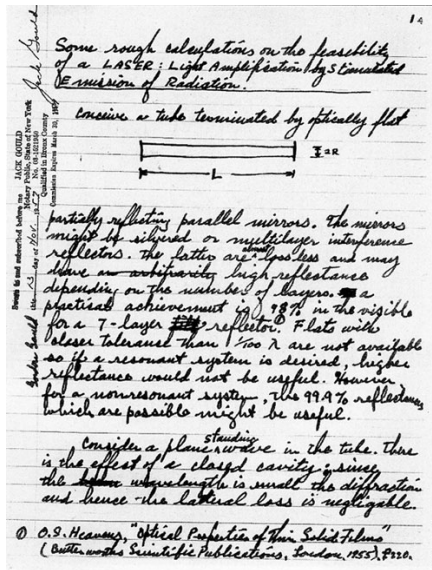 1
Some rough calculations on the feasibility
of a LASER: Light Amplification by Stimulated
Emission of Radiation.
conceive a tube terminated by optically flat
2R
L
partially reflecting parallel mirrors. The mirrors
might be silvered or multilayer interference
reflectors. The latter are almost lossless and may
have high reflectance
depending on the number of layers. a
practical achievement is 98% in the visible
for a 7-layer reflector.① Flats with
closer tolerance than 1/100 λ are not available
so if a resonant system is desired, higher
reflectance would not be useful. However
for a nonresonant system, the 99.9% reflectances
which are possible might be useful.
Consider a plane standing wave in the tube. There
is the effect of a closed cavity; since
the wavelength is small the diffraction
and hence the lateral loss is negligable.
① O.S. Heavens, "Optical Properties of Thin Solid Films"
(Butterworths Scientific Publications, London, 1955), p220.
Jack Gould
JACK GOULD
Notary Public, State of New York
Qualified in Bronx County
Commission Expires March 30,
Sworn to and subscribed before me
this 13 day of Nov. 1957
Gordon Gould